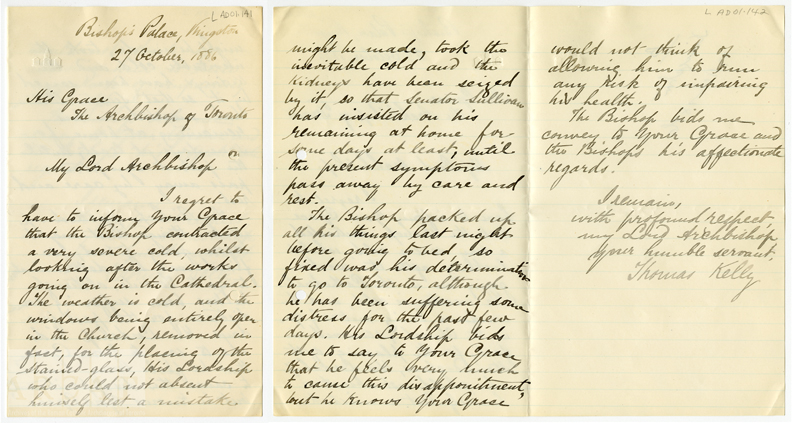 L AD01.141
Bishop's Palace, Kingston
27 October, 1886
His Grace
The Archbishop of Toronto
My Lord Archbishop
I regret to
have to inform Your Grace
that the Bishop contracted
a very severe cold, whilst
looking after the works
going on in the Cathedral.
The weather is cold, and the
windows being entirely open
in the Church, removed in
fact, for the placing of the
stained-glass, His Lordship
who could not absent
himself lest a mistake
L AD01-142
might be made, took the
inevitable cold and the
Kidneys have been seized
by it, so that Senator Sullivan
has insisted on his
remaining at home for
some days at least, until
the present symptoms
pass away by care and
rest.
The Bishop packed up
all his things last night
before going to bed, so
fixed was his determination
to go to Toronto, although
he has been suffering some
distress for the past few
days. His Lordship bids
me to say to Your Grace
that he feels very much
to cause this disappointment,
but he knows Your Grace
would not think of
allowing him to run
any risk of impairing
his health.
The Bishop bids me
convey to Your Grace and
the Bishops his affectionate
regards.
I remain,
with profound respect
my Lord Archbishop,
Your humble servant,
Thomas Kelly